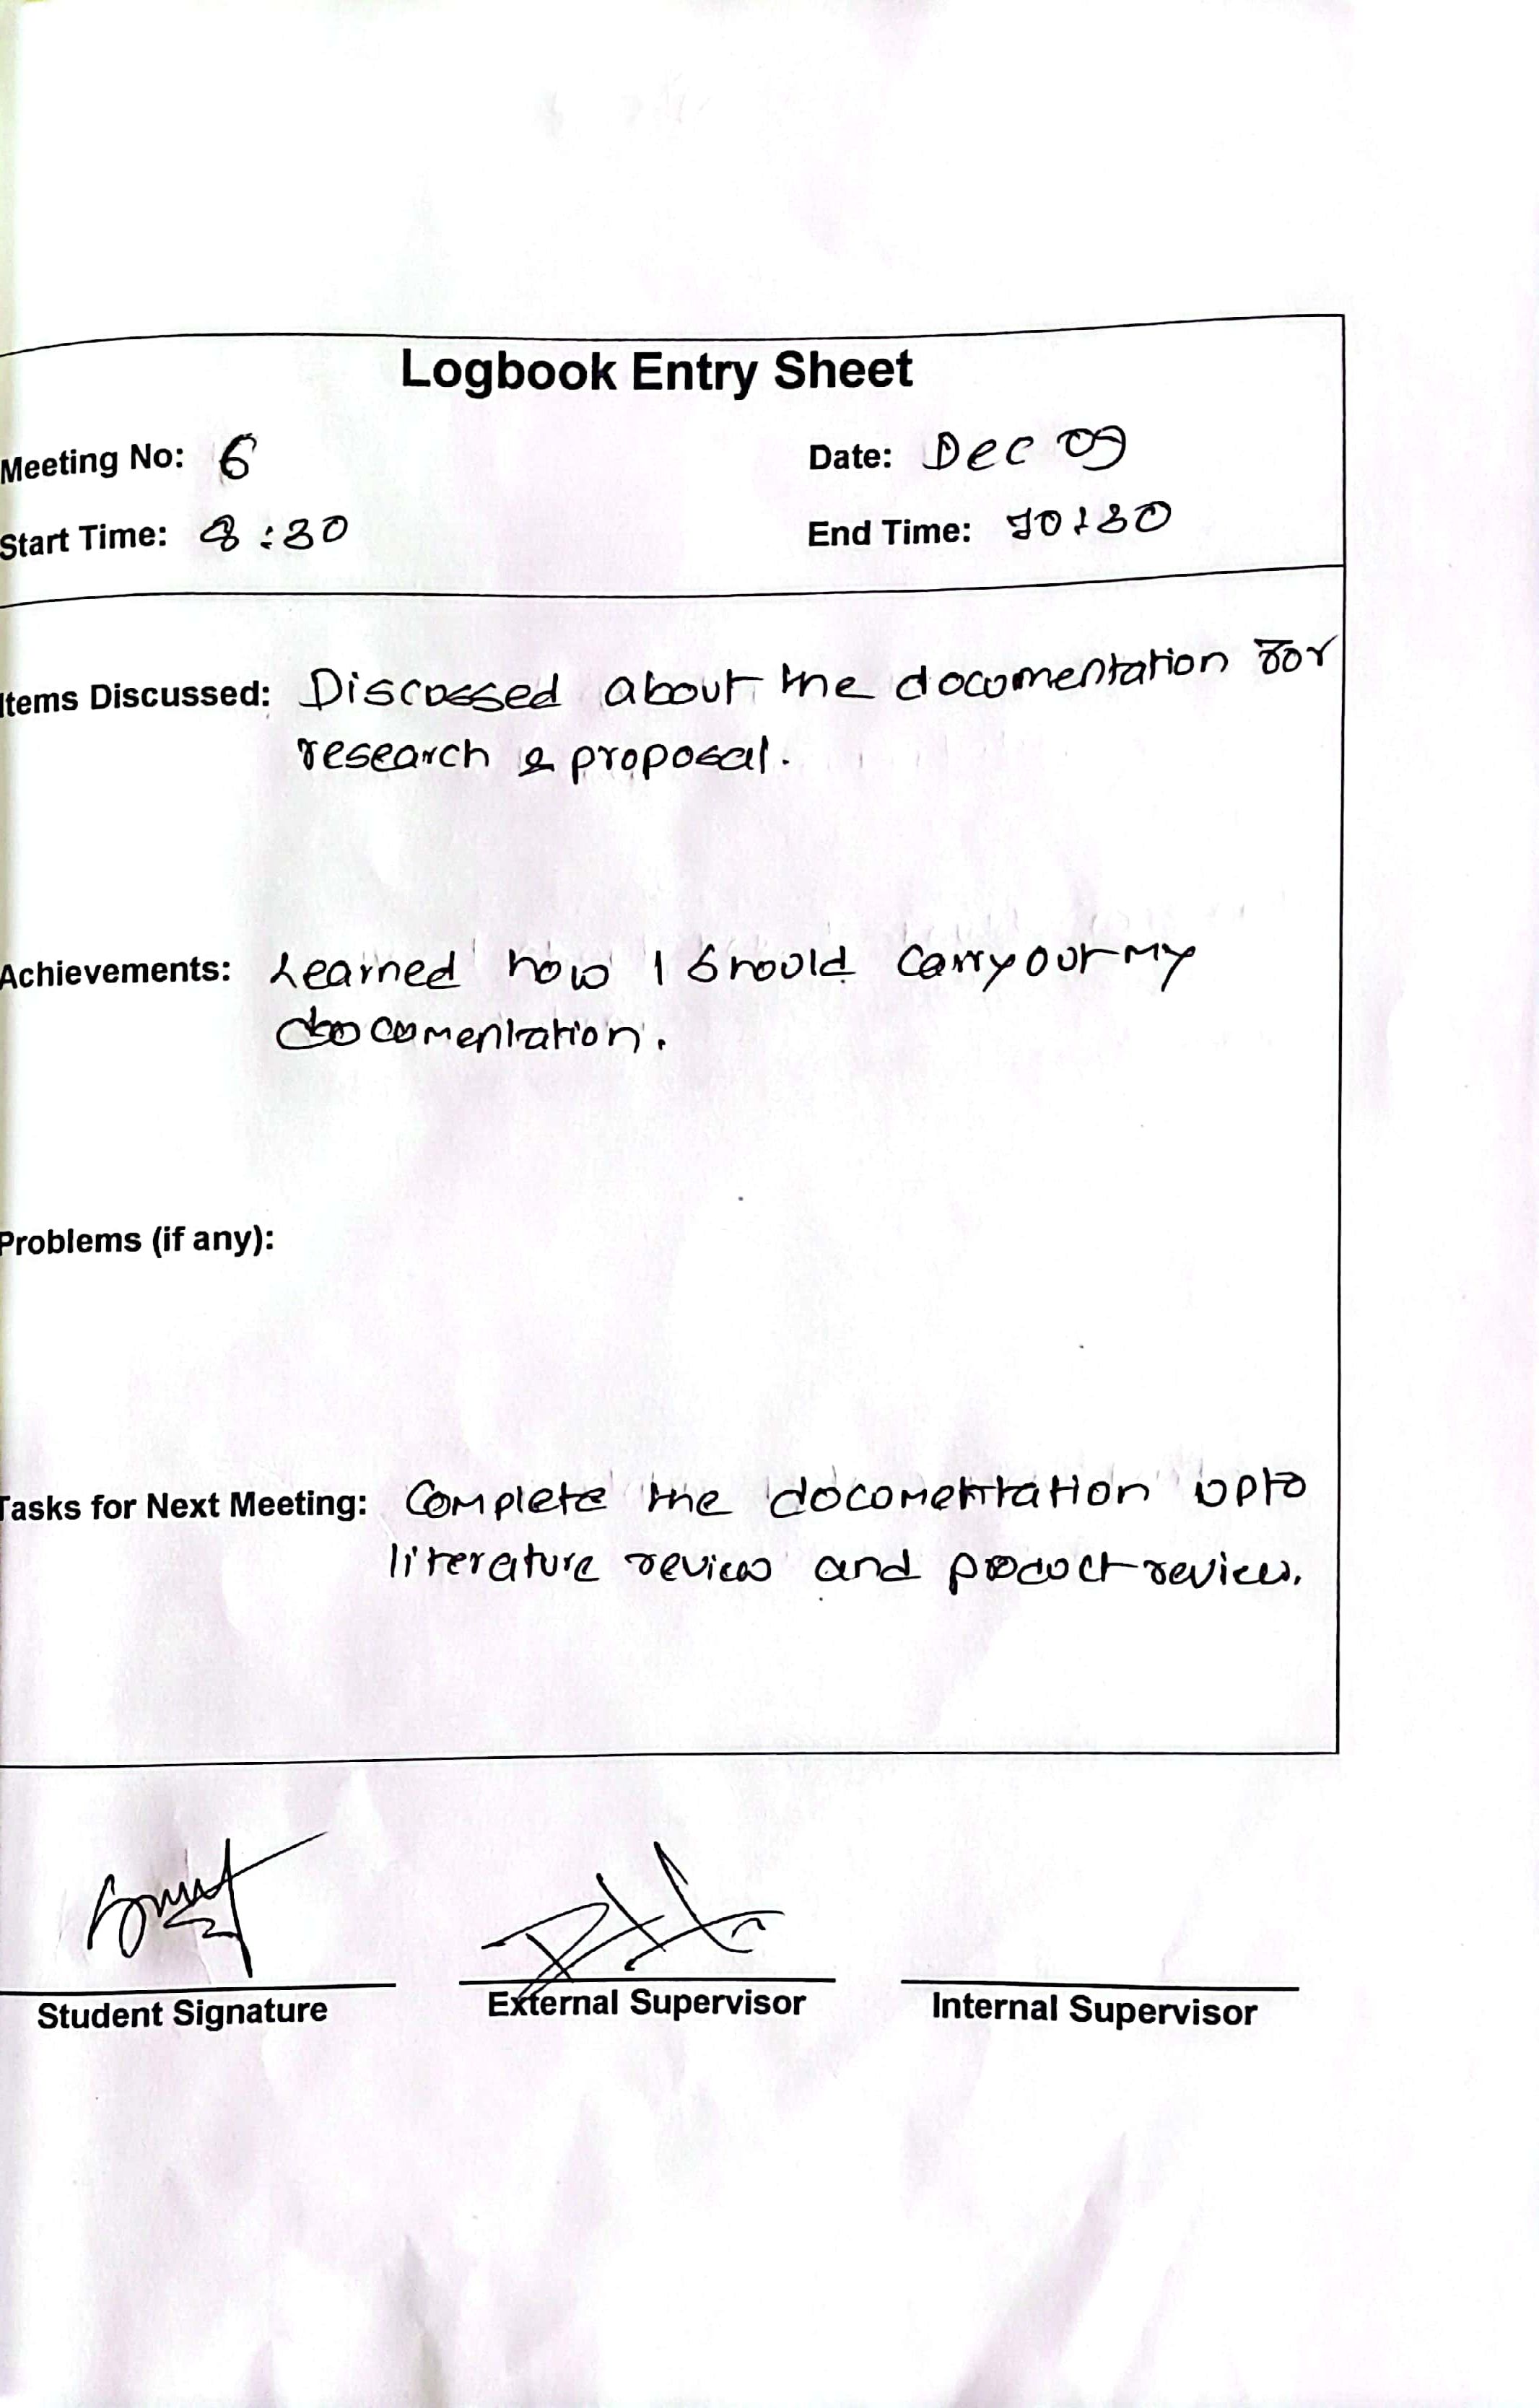 Logbook Entry Sheet
Meeting No: 6 Date: Dec 09
Start Time: 8:30 End Time: 10:30
Items Discussed: Discussed about the documentation for
research & proposal.
Achievements: Learned how I should carryout my
documentation.
Problems (if any):
Tasks for Next Meeting: Complete the documentation upto
literature review and product review.
Student Signature External Supervisor Internal Supervisor